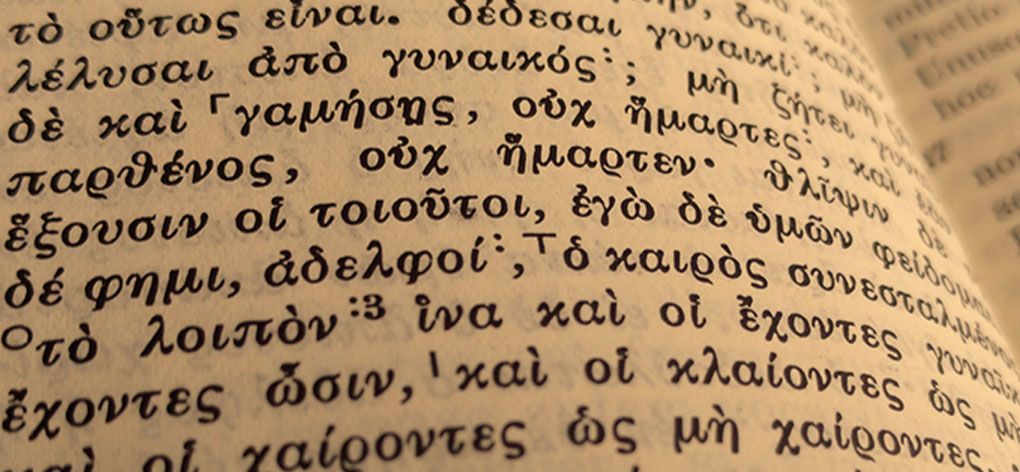 τὸ οὕτως εἶναι. δέδεσαι γυναικί⁚; μὴ
λέλυσαι ἀπὸ γυναικός⁚; μὴ ζήτει
δὲ καὶ ⸀γαμήσῃς, οὐχ ἥμαρτες⁚, καὶ
παρθένος, οὐχ ἥμαρτεν· θλῖψιν δὲ
ἕξουσιν οἱ τοιοῦτοι, ἐγὼ δὲ ὑμῶν φείδομαι
δέ φημι, ἀδελφοί⁚,⸆ ὁ καιρὸς συνεσταλμένος
⸰τὸ λοιπὸν :3 ἵνα καὶ οἱ ἔχοντες
ἔχοντες ὦσιν, ˈκαὶ οἱ κλαίοντες ὡς μὴ
καὶ οἱ χαίροντες ὡς μὴ χαίροντες
hoc